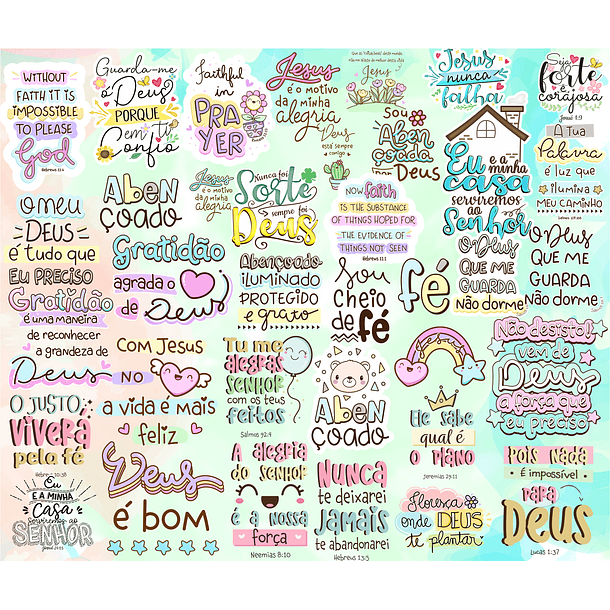 WITHOUT
FAITH IT IS
IMPOSSIBLE
TO PLEASE
God
Hebreus 11:6
Guarda-me
ó Deus
PORQUE
em ti
Confio
Faithful
in
PRA
YER
Jesus
é o motivo
da minha
alegria
Jesus
Deus
está sempre
comigo
SOU
Aben
çoada
por
Deus
Jesus
nunca
falha
Seja
forte
e
corajosa
Josué 1:9
A Tua
Palavra
é luz que
ilumina
MEU CAMINHO
O meu
DEUS
é tudo que
EU PRECISO
Aben
çoado
Jesus
é o motivo
da minha
alegria
Nunca foi
Sorte
sempre foi
Deus
NOW faith
IS THE SUBSTANCE
OF THINGS HOPED FOR
THE EVIDENCE OF
THINGS NOT SEEN
Hebreus 11:1
Eu e a
minha
casa
serviremos
ao
Senhor
O Deus
QUE ME
GUARDA
Não dorme
O Deus
QUE ME
GUARDA
Não dorme
Gratidão
é uma maneira
de reconhecer
a grandeza de
Deus
Gratidão
agrada o
de Deus
Abençoado
iluminado
PROTEGIDO
e grato
Sou
cheio
de
fé
fé
COM JESUS
NO
a vida é mais
feliz
Tu me
alegras
SENHOR
com os teus
feitos
Salmos 92:4
Aben
çoado
Jesus
Não desista!
vem de
Deus
a força que
eu preciso
O JUSTO
VIVERÁ
pela fé
Hebreus 10:38
Deus
é bom
A alegria
do senhor
é a nossa
força
Neemias 8:10
NUNCA
te deixarei
JAMAIS
te abandonarei
Hebreus 13:5
Ele sabe
qual é
o plano
Jeremias 29:11
Pois nada
é impossível
PARA
DEUS
Lucas 1:37
Eu
E A MINHA
CASA
serviremos ao
SENHOR
Josué 24:15
Floresça
onde DEUS
te plantar